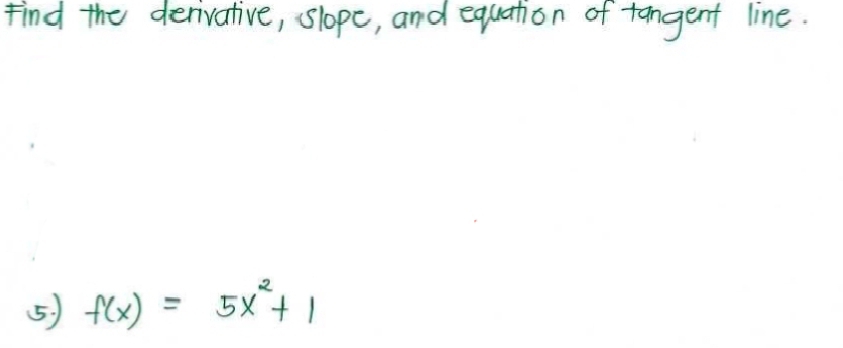 Find the derivative, slope, and equation of tangent line.
5.) f(x) = 5x² + 1